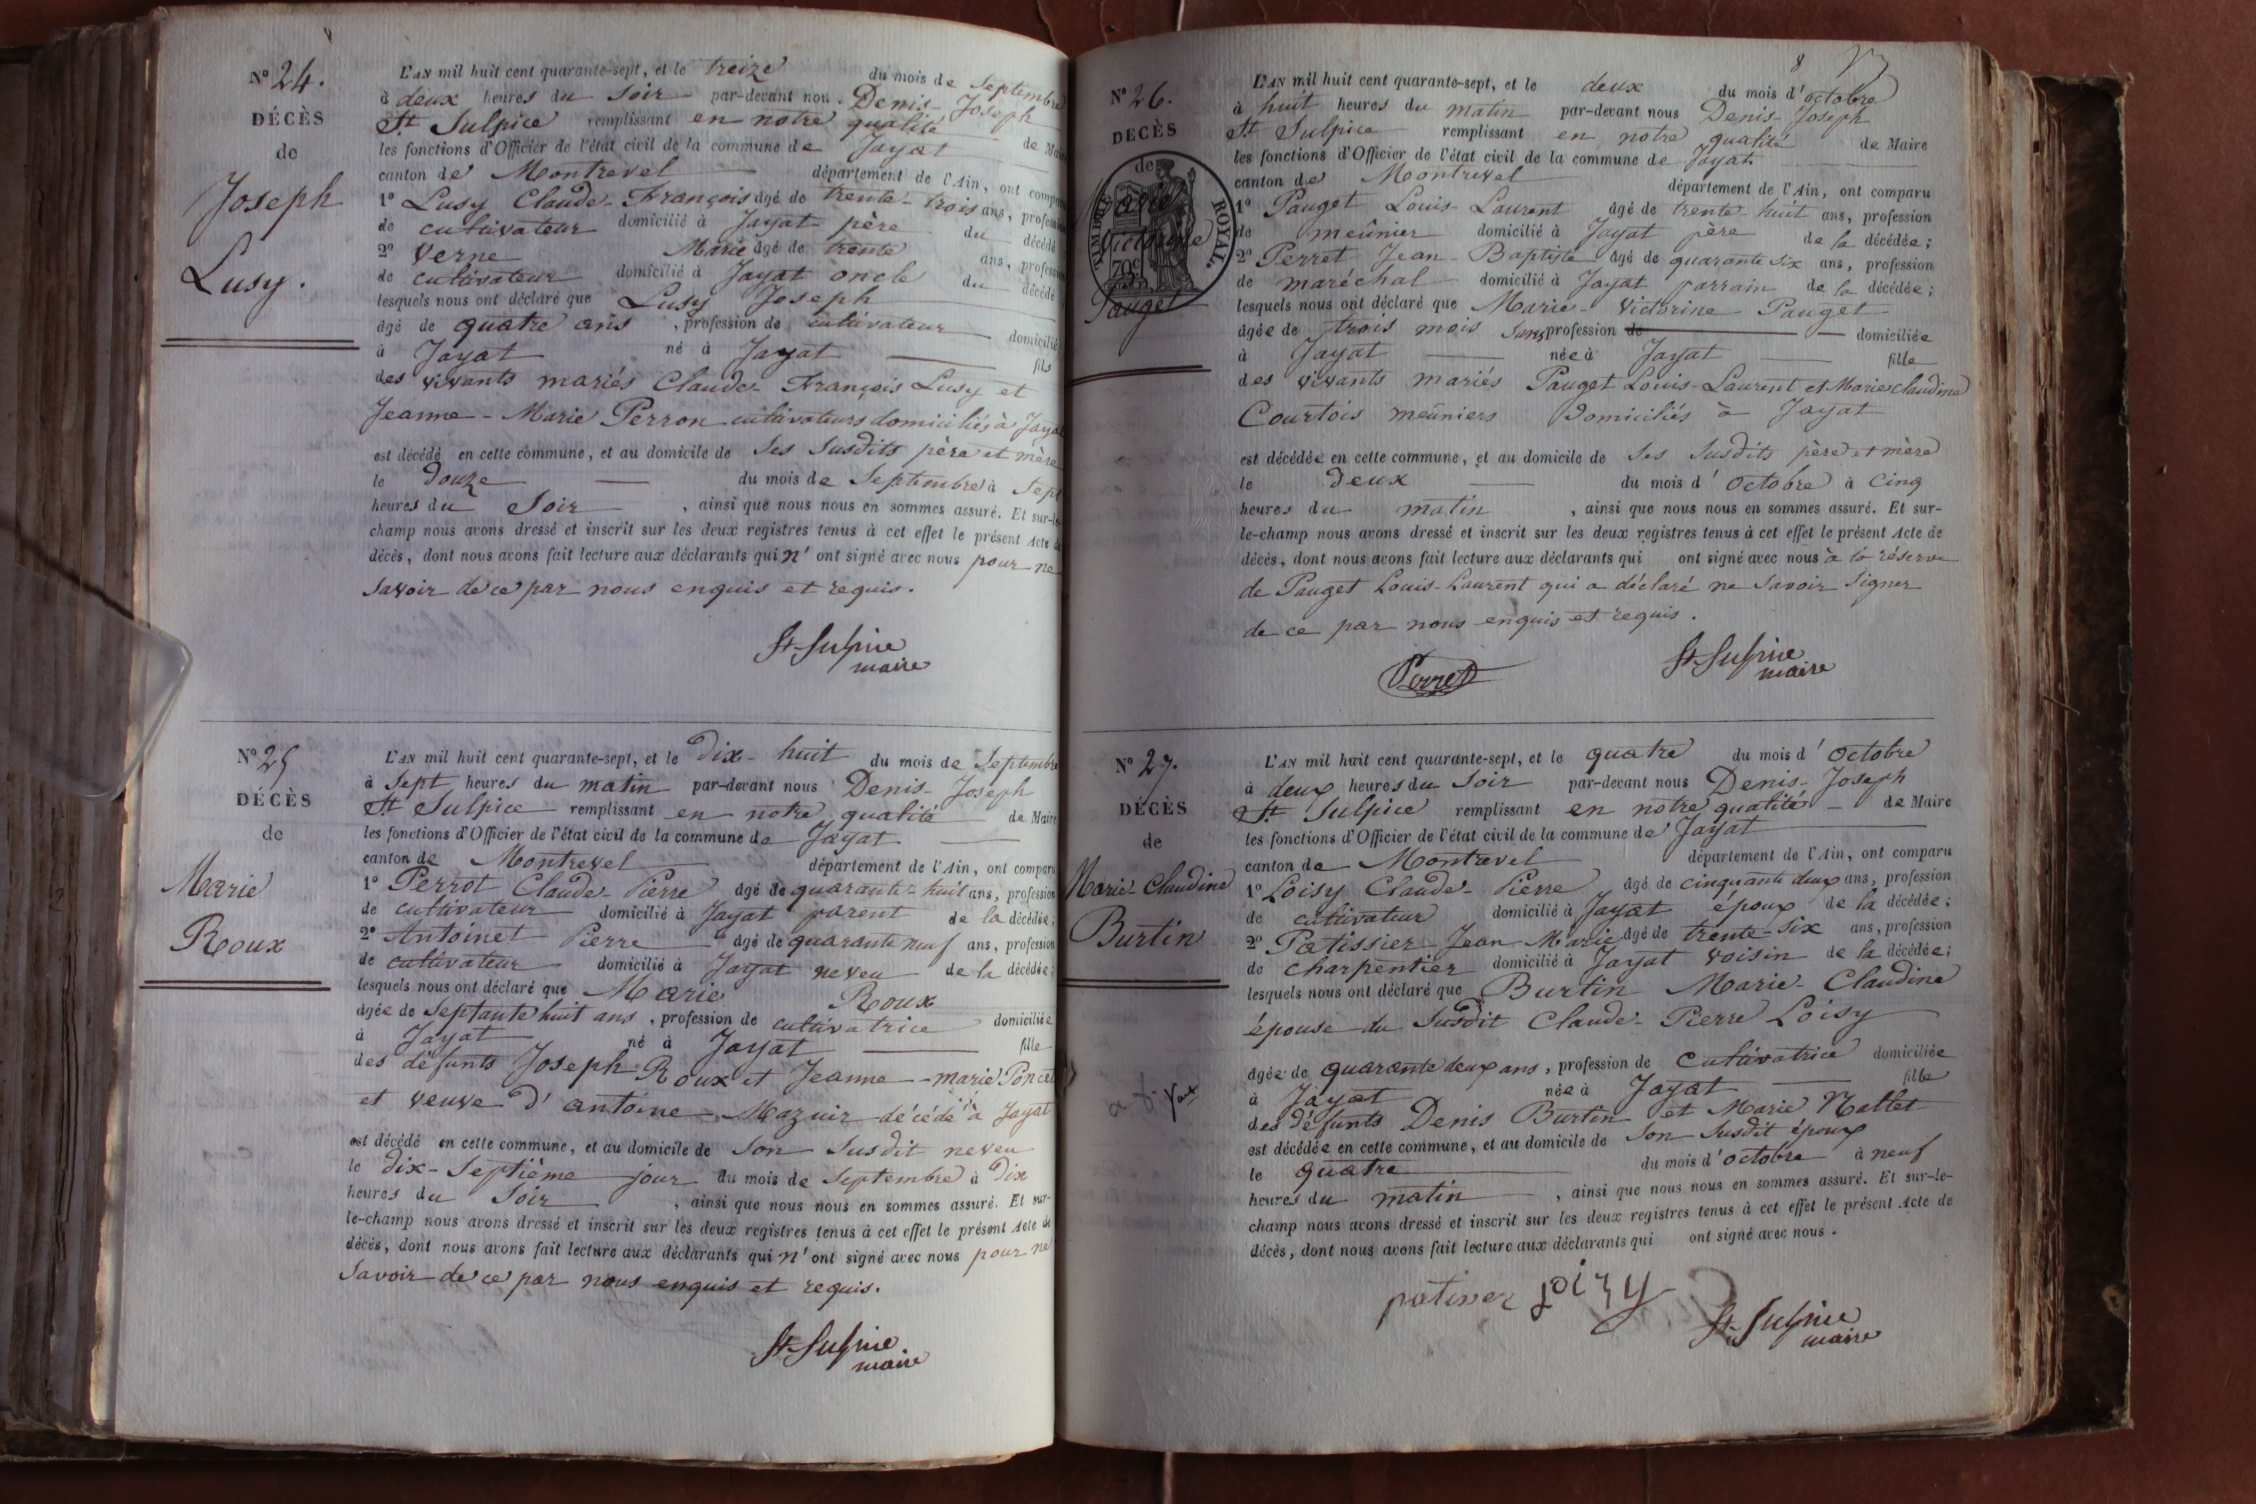 N° 24.
DÉCÈS
de
Joseph
Lusy.
L'AN mil huit cent quarante-sept, et le treize du mois de Septembre
à deux heures du soir par-devant nou. Denis-Joseph
St Sulpice remplissant en notre qualité de Maire
les fonctions d'Officier de l'état civil de la commune de Jayat
canton de Montrevel département de l'Ain, ont comparu
1° Lusy Claude-François âgé de trente-trois ans, profession
de cultivateur domicilié à Jayat père du décédé
2° Verne Marie âgé de trente ans, profession
de cultivateur domicilié à Jayat oncle du décédé
lesquels nous ont déclaré que Lusy Joseph
âgé de quatre ans, profession de cultivateur domicilié
à Jayat né à Jayat fils
des vivants mariés Claude François Lusy et
Jeanne-Marie Perron cultivateurs domiciliés à Jayat
est décédé en cette commune, et au domicile de ses susdits père et mère
le douze du mois de Septembre à sept
heures du soir, ainsi que nous nous en sommes assuré. Et sur-le-
champ nous avons dressé et inscrit sur les deux registres tenus à cet effet le présent Acte de
décès, dont nous avons fait lecture aux déclarants qui n'ont signé avec nous pour ne
savoir de ce par nous enquis et requis.
St Sulpice
maire
N° 25
DÉCÈS
de
Marie
Roux
L'AN mil huit cent quarante-sept, et le dix-huit du mois de Septembre
à sept heures du matin par-devant nous Denis-Joseph
St Sulpice remplissant en notre qualité de Maire
les fonctions d'Officier de l'état civil de la commune de Jayat
canton de Montrevel département de l'Ain, ont comparu
1° Perrot Claude Pierre âgé de quarante-huit ans, profession
de cultivateur domicilié à Jayat parent de la décédée;
2° Antoinet Pierre âgé de quarante neuf ans, profession
de cultivateur domicilié à Jayat neveu de la décédée;
lesquels nous ont déclaré que Marie Roux
âgée de septante huit ans, profession de cultivatrice domiciliée
à Jayat né à Jayat fille
des défunts Joseph Roux et Jeanne-Marie Poncet
et veuve d'antoine Mazuir décédé à Jayat
est décédé en cette commune, et au domicile de son susdit neveu
le dix-septième jour du mois de septembre à dix
heures du soir, ainsi que nous nous en sommes assuré. Et sur-
le-champ nous avons dressé et inscrit sur les deux registres tenus à cet effet le présent Acte de
décès, dont nous avons fait lecture aux déclarants qui n'ont signé avec nous pour ne
savoir de ce par nous enquis et requis.
St Sulpice
maire
8
N° 26.
DÉCÈS
de
Marie
Victorine
Pauget
TIMBRE ROYAL.
70c
L'AN mil huit cent quarante-sept, et le deux du mois d'octobre
à huit heures du matin par-devant nous Denis-Joseph
St Sulpice remplissant en notre qualité de Maire
les fonctions d'Officier de l'état civil de la commune de Jayat
canton de Montrevel département de l'Ain, ont comparu
1° Pauget Louis-Laurent âgé de trente-huit ans, profession
de meûnier domicilié à Jayat père de la décédée;
2° Perret Jean-Baptiste âgé de quarante six ans, profession
de maréchal domicilié à Jayat parrain de la décédée;
lesquels nous ont déclaré que Marie-Victorine Pauget
âgée de trois mois sans profession de domiciliée
à Jayat née à Jayat fille
des vivants mariés Pauget Louis-Laurent et Marie Claudine
Courtois meûniers domiciliés à Jayat
est décédée en cette commune, et au domicile de ses susdits père et mère
le deux du mois d'octobre à cinq
heures du matin, ainsi que nous nous en sommes assuré. Et sur-
le-champ nous avons dressé et inscrit sur les deux registres tenus à cet effet le présent Acte de
décès, dont nous avons fait lecture aux déclarants qui ont signé avec nous à la réserve
de Pauget Louis-Laurent qui a déclaré ne savoir signer
de ce par nous enquis et requis.
Perret
St Sulpice
maire
N° 27.
DÉCÈS
de
Marie Claudine
Burtin
L'AN mil huit cent quarante-sept, et le quatre du mois d'octobre
à deux heures du soir par-devant nous Denis-Joseph
St Sulpice remplissant en notre qualité de Maire
les fonctions d'Officier de l'état civil de la commune de Jayat
canton de Montrevel département de l'Ain, ont comparu
1° Loisy Claude-Pierre âgé de cinquante deux ans, profession
de cultivateur domicilié à Jayat époux de la décédée;
2° Patissier Jean Marie âgé de trente-six ans, profession
de charpentier domicilié à Jayat voisin de la décédée;
lesquels nous ont déclaré que Burtin Marie-Claudine
épouse du susdit Claude-Pierre Loisy
âgée de quarante deux ans, profession de cultivatrice domiciliée
à Jayat née à Jayat fille
des défunts Denis Burtin et Marie Nallet
est décédée en cette commune, et au domicile de son susdit époux
le quatre du mois d'octobre à neuf
heures du matin, ainsi que nous nous en sommes assuré. Et sur-le-
champ nous avons dressé et inscrit sur les deux registres tenus à cet effet le présent Acte de
décès, dont nous avons fait lecture aux déclarants qui ont signé avec nous.
loizy
St Sulpice
maire